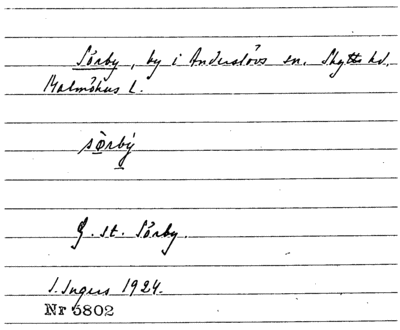 Sörby, by i Anderslövs sn. Skytts hd.
Malmöhus L.
sö̀rbý
G. st. Sörby.
I. Ingers 1924.
Nr 5802